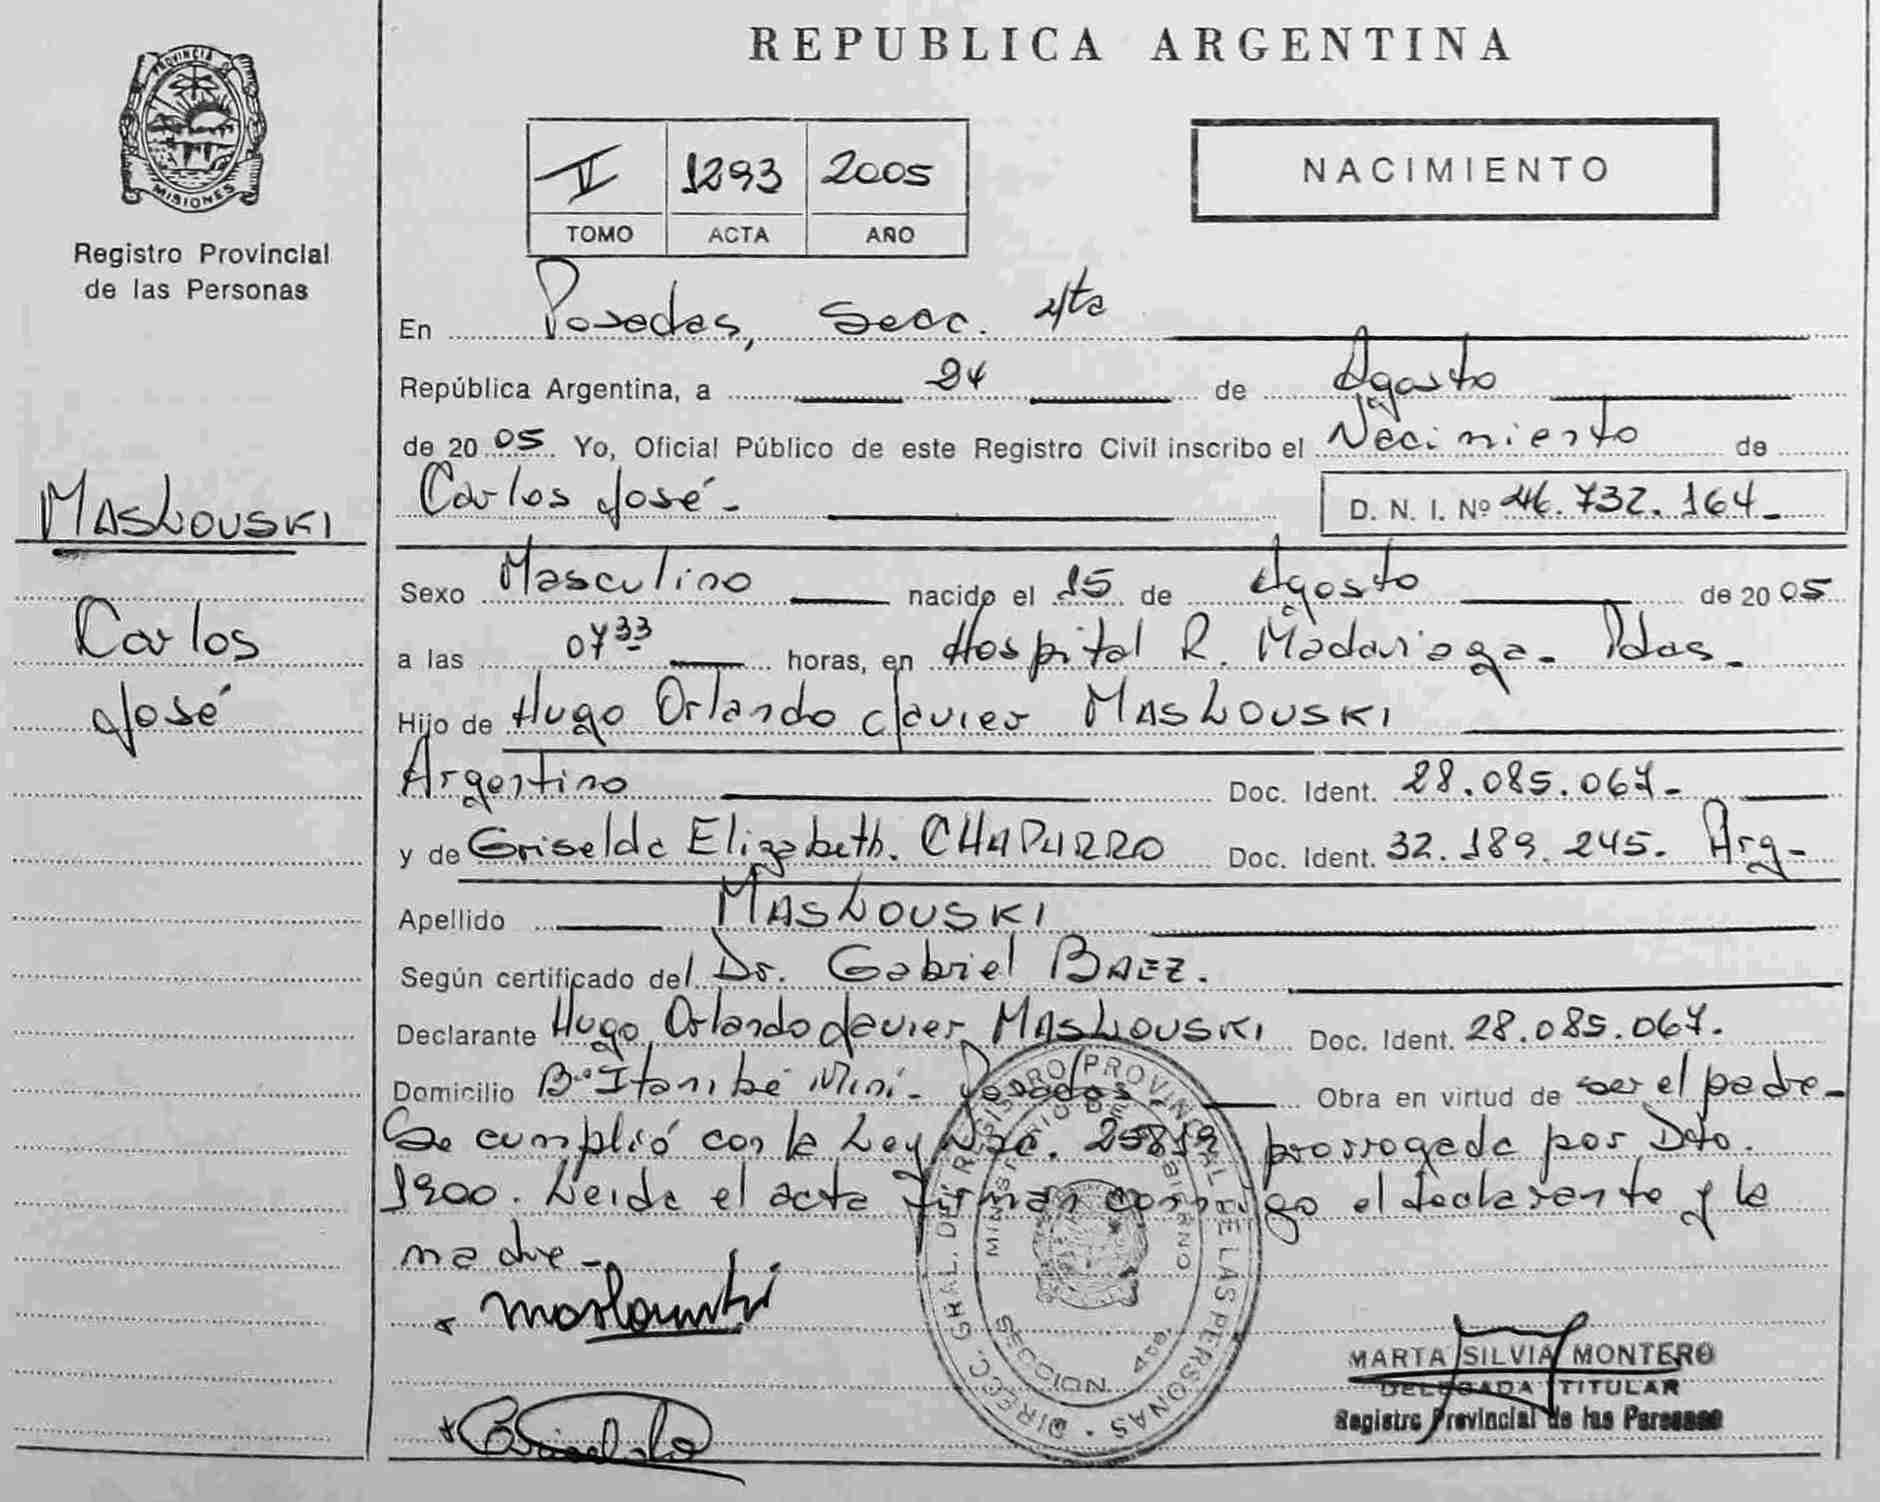 PROVINCIA DE
MISIONES
Registro Provincial
de las Personas
MASLOUSKI
Carlos
José
REPUBLICA ARGENTINA
II 1293 2005
TOMO ACTA AÑO
NACIMIENTO
En Posadas, Secc. 4ta
República Argentina, a 24 de Agosto
de 2005 Yo, Oficial Público de este Registro Civil inscribo el Nacimiento de
Carlos José - D. N. I. Nº 46.732.164-
Sexo Masculino nacido el 15 de Agosto de 2005
a las 0733 horas, en Hospital R. Madariaga - Pdas -
Hijo de Hugo Orlando Javier MASLOUSKI
Argentino Doc. Ident. 28.085.067-
y de Griselda Elizabeth. CHAPARRO Doc. Ident. 32.189.245. Arg-
Apellido MASLOUSKI
Según certificado del Dr. Gabriel BAEZ.
Declarante Hugo Orlando Javier MASLOUSKI Doc. Ident. 28.085.067.
Domicilio Bº Itambé Miní - Posadas Obra en virtud de ser el padre -
Se cumplió con la Ley Nro. 25819 prorrogada por Dto.
1900. Leida el acta firman conmigo el declarante y la
madre -
Maslouski
Griselda
DIRECC. GRAL. DEL REGISTRO PROVINCIAL DE LAS PERSONAS
MINISTERIO DE GOBIERNO
SECCION 4ta.
MARTA SILVIA MONTERO
DELEGADA TITULAR
Registro Provincial de las Personas